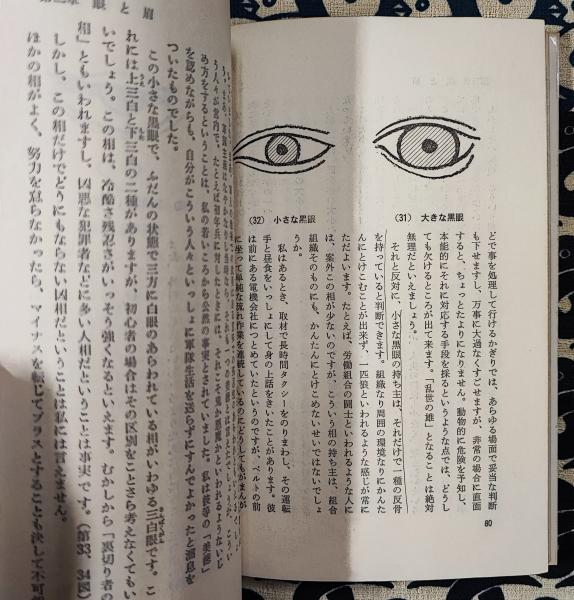 どで事を処理して行けるかぎりでは、あらゆる場面で妥当な判断
も下せますし、万事に大過なくすごせますが、非常の場合に直面
すると、ちょっとたよりになりません。動物的に危険を予知し、
本能的にそれに対応する手段を採るというような点では、どうし
ても欠けるところが出て来ます。「乱世の雄」となることは絶対
無理だといえましょう。
それと反対に、小さな黒眼の持ち主は、それだけで一種の反骨
を持っていると判断できます。組織なり周囲の環境なりにかんた
んにとけこむことが出来ず、一匹狼といわれるような感じが常に
ただよいます。たとえば、労働組合の闘士といわれるような人に
は、案外この相が少ないのですが、こういう相の持ち主は、組合
組織そのものにも、かんたんにとけこめないせいではないでしょ
うか。
私はあるとき、取材で長時間タクシーをのりまわし、その運転
手と昼食をいっしょにして身の上話をきいたことがあります。彼
は前にある電機会社につとめていたというのですが、ベルトの前
に坐って単純な流れ作業を連続しているのにどうしてもがまんが
(31) 大きな黒眼
(32) 小さな黒眼
80
眉と眼
う人々が営内で、たとえば初年兵に対したときには、それこそ鬼か悪魔かといわれるようないじ
め方をするということは、私の若いころから公然の事実とされていました。私は彼等の「美徳」
を認めながらも、自分がこういう人々といっしょに軍隊生活を送らずにすんでよかったと溜息を
ついたものでした。
この小さな黒眼で、ふだんの状態で三方に白眼のあらわれている相がいわゆる三白眼です。こ
れには上三白と下三白の二種がありますが、初心者の場合はその区別をことさら考えなくてもい
いでしょう。この相は、冷酷さ残忍さがいっそう強くなるといえます。むかしから「裏切り者の
相」ともいわれますし、凶悪な犯罪者などに多い人相だということは事実です。(第33、34図)
しかし、この相だけでどうにもならない凶相だということは私には言えません。
ほかの相がよく、努力を怠らなかったら、マイナスを転じてプラスとすることも決して不可